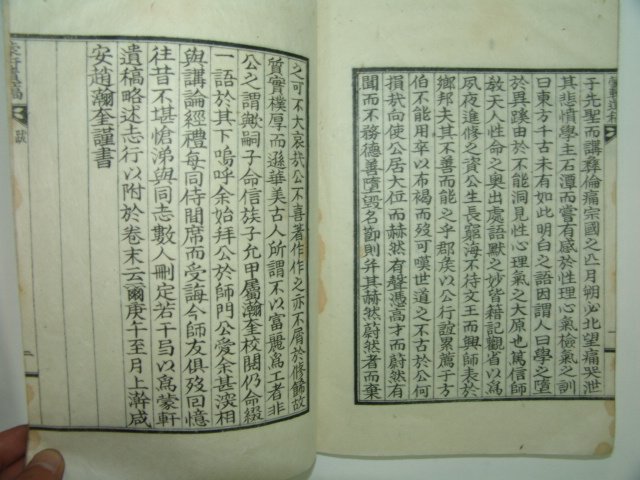 蒙軒遺稿
于先聖而講彝倫痛宗國之亾月朔必北望痛哭泄
其悲憤學主石潭而嘗有感於性理心氣檢氣之訓
曰東方千古未有如此明白之語因謂人曰學之墮
於異蹊由於不能洞見性心理氣之大原也篤信師
敎天人性命之奧出處語默之妙皆籍記觀省以爲
夙夜進修之資公生長窮海不待文王而興師表於
鄕邦夫其不善而能之乎郡矦以公行誼累薦于方
伯不能用卒以布褐而歿可嘆世道之不古於公何
損哉向使公居大位而赫然有聲憑高才而蔚然有
聞而不務德善墮毁名節則幷其赫然蔚然者而棄
之可不大哀哉公不喜著作作之亦不屑於修餙故
質實樸厚而遜華美古人所謂不以富麗爲工者非
公之謂歟嗣子命信族子允甲屬瀚奎校閱仍命綴
一語於其下嗚呼余始拜公於師門公愛余甚深相
與講論經禮每同侍間席而受誨今師友俱歿回憶
往昔不堪愴涕與同志數人刪定若干弓以爲蒙軒
遺稿略述志行以附於卷末云爾庚午至月上澣咸
安趙瀚奎謹書
蒙軒遺稿
跋
二